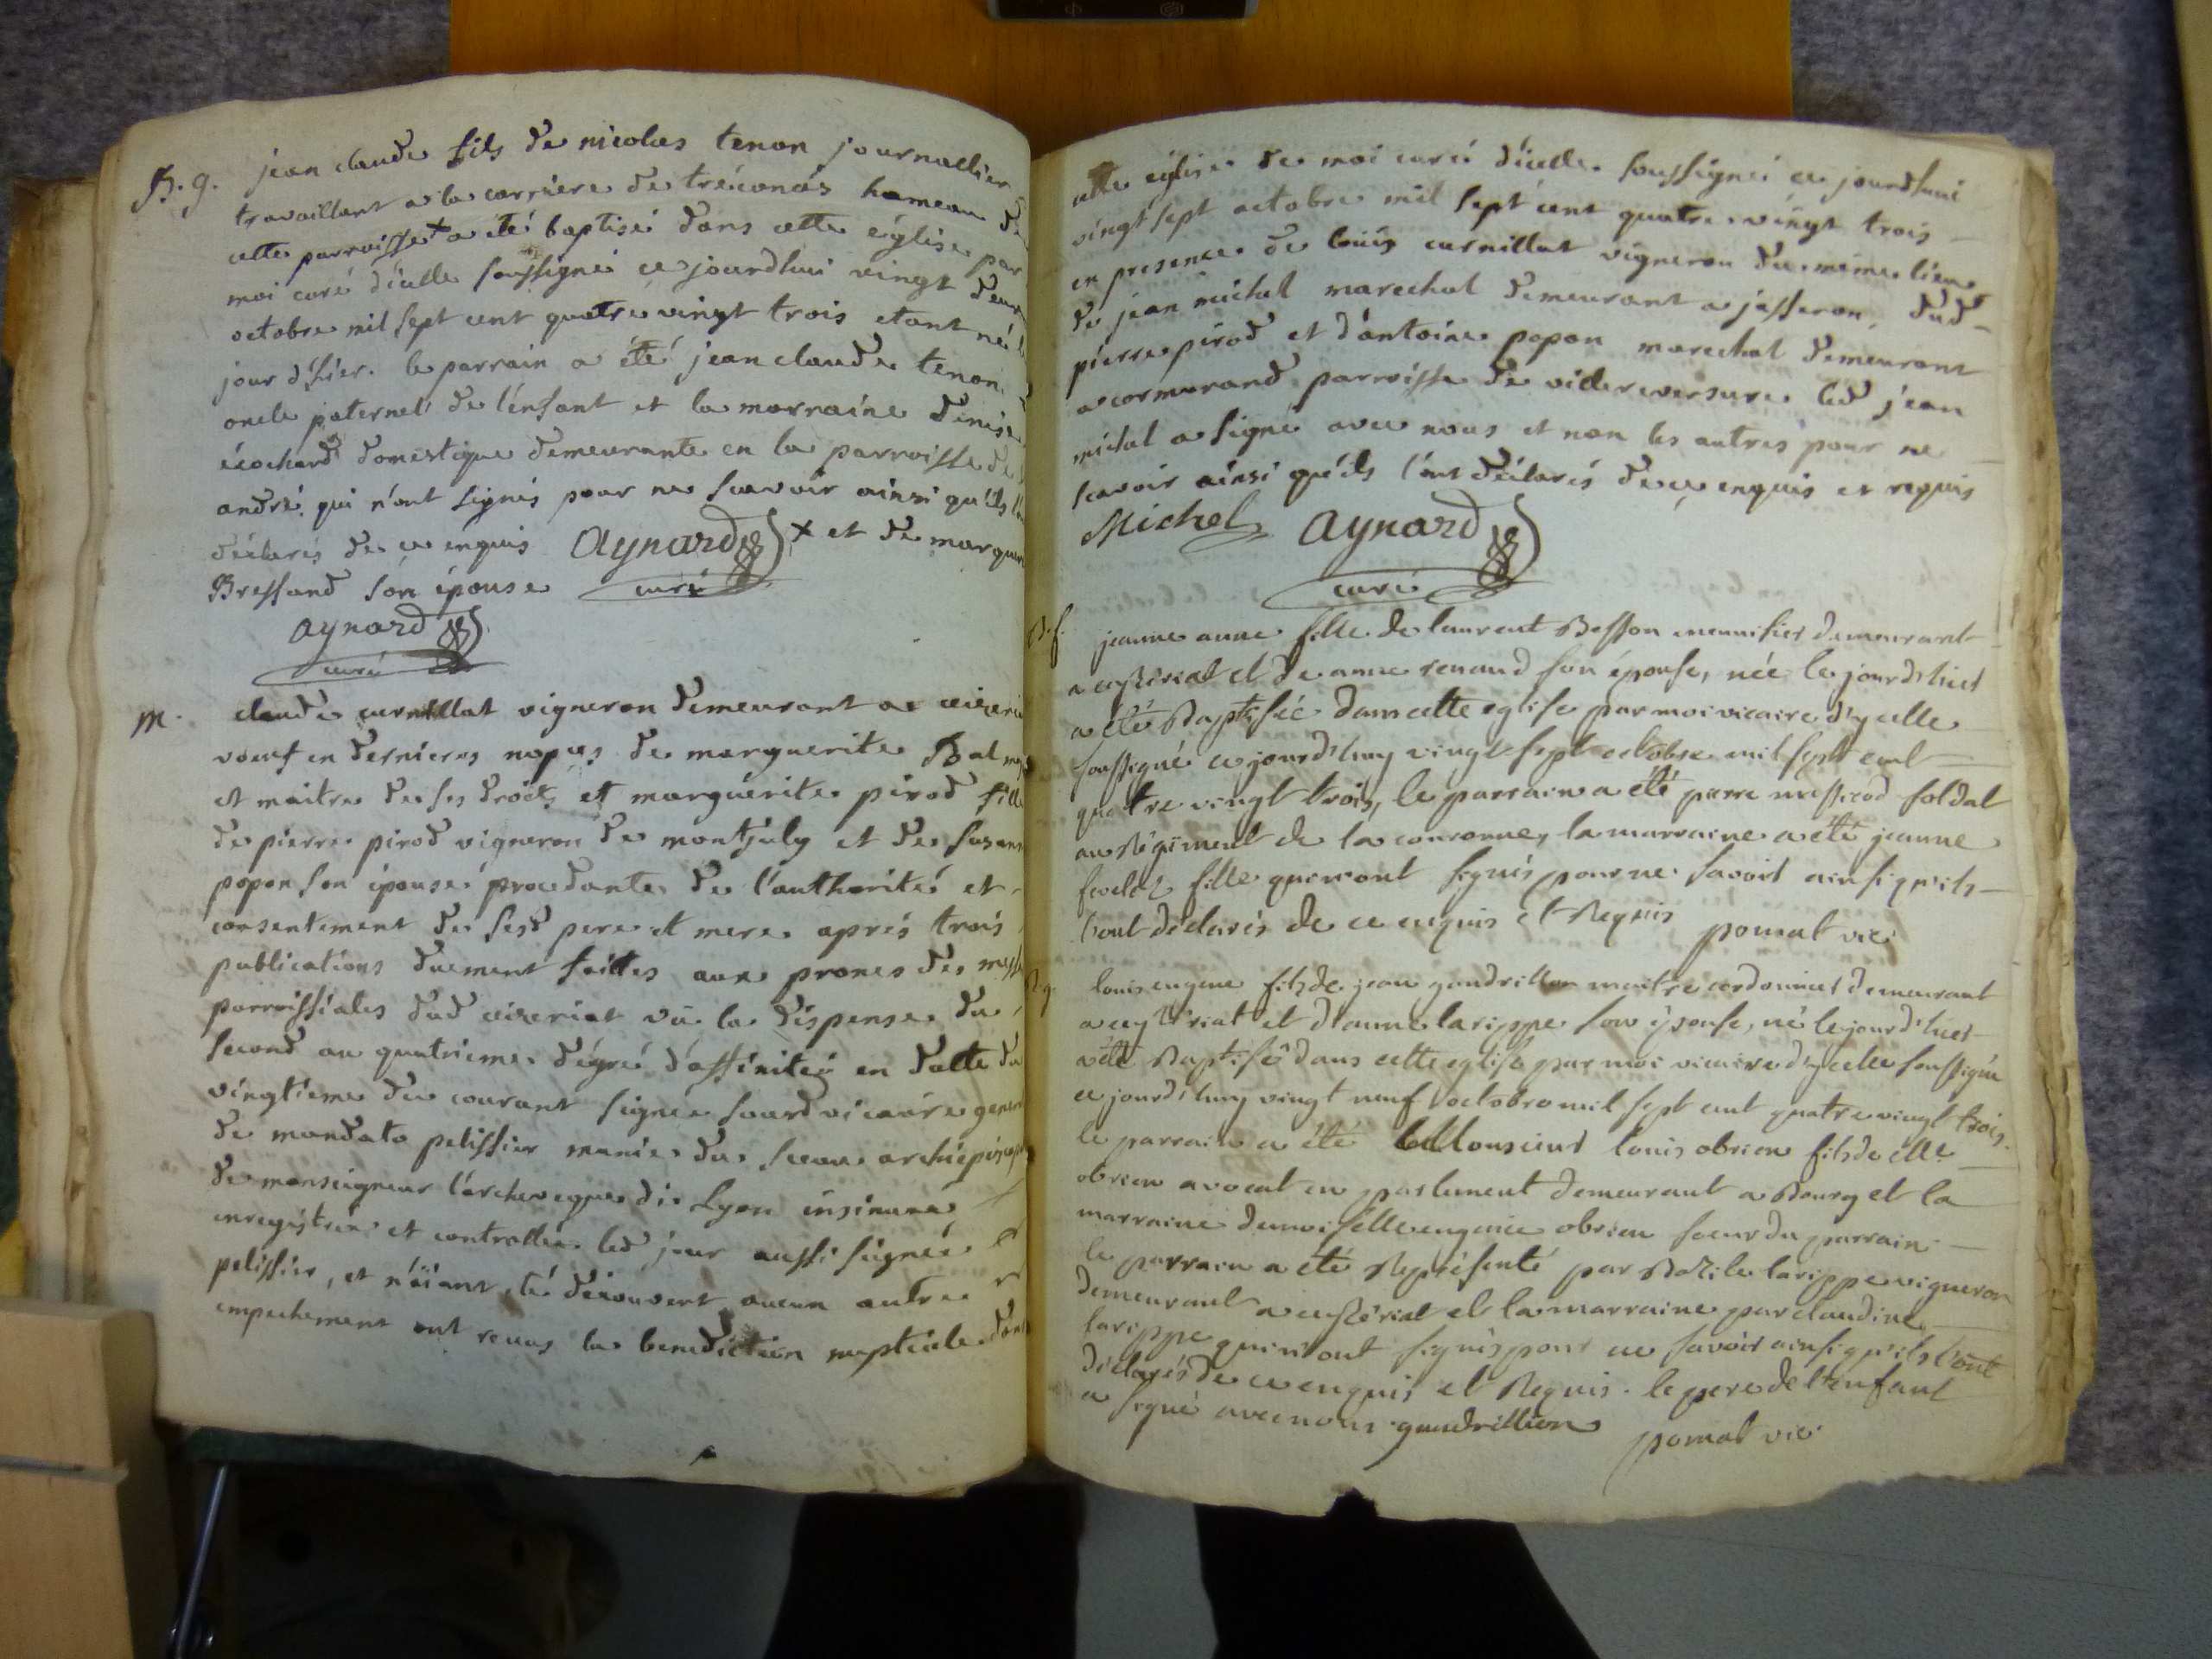 B. g. jean claude fils de nicolas tenon journallier
travaillant a la carriere de tréconas hameau de
cette parroisse + a été baptisé dans cette église par
moi curé d'icelle soussigné ce jourdhui vingt deux
octobre mil sept cent quatre vingt trois etant né
jour d'hier. le parrain a été jean claude tenon
oncle paternel de l'enfant et la marraine denise
écochard domestique demeurante en la parroisse de
andré qui n'ont signés pour ne scavoir ainsi qu'ils
déclarés de ce enquis Aynard + et de
Bressand son épouse curé
aynard
curé
M. claude curnillat vigneron demeurant a
voeuf en dernieres nopces de marguerite
et maitre de ses droits et marguérite pirod fille
de pierre pirod vigneron de montjuly et de
popon son épouse procedante de l'authorité et
consentement de sesd pere et mere aprés trois
publications duement faittes aux prones des
parroissiales dud ceizeriat vû la dispense du
second au quatrieme dégré d'affinité en datte du
vingtieme du courant signée vicaire
de mandato pelissier munie du sceau
de monseigneur l'archeveque de Lyon insinuée
enregistrée et controllée led jour aussi signée
pelissier, et n'aïant été découvert aucun autre
empechement ont recus la benediction nuptiale dans
cette église de moi curé d'icelle soussigné ce jourdhui
vingt sept octobre mil sept cent quatre vingt trois
en presence de loüis curnillat vigneron du même lieu
de jean michel marechal demeurant a jasseron, dud
pierre pirod et d'antoine popon marechal demeurant
a cormorand parroisse de led jean
michel a signé avec nous et non les autres pour ne
scavoir ainsi qu'ils l'ont déclarés de ce enquis et requis
Michel Aynard
curé
B. f. jeanne anne fille de laurent Besson demeurant
a ceyzériat et de anne renaud son épouse, née le jourd'hier
a été Baptisée dans cette eglise par moi vicaire d'ycelle
soussigné ce jourd'huy vingt sept octobre mil sept cent
quatre vingt trois, le parrain a été pierre soldat
au Régiment de la couronne, la marraine a été jeanne
fille qui n'ont signés pour ne savoir ainsi qu'ils
l'ont déclarés de ce enquis et Requis pomat vic
B. g. louis eugene fils de jean gandrillon maitre cordonnier demeurant
a ceyzériat et d'anne larippe son épouse, né le jourd'hier
a été Baptisé dans cette eglise par moi vicaire d'ycelle soussigné
ce jourd'huy vingt neuf octobre mil sept cent quatre vingt trois.
le parrain a été Monsieur louis obrien fils de
obrien avocat en parlement demeurant a Bourg et la
marraine demoiselle eugenie obrien soeur du parrain
le parrain a été Représenté par Bazile larippe vigneron
demeurant a ceyzériat et la marraine par claudine
larippe qui n'ont signés pour ne savoir ainsi qu'ils l'ont
déclarés de ce enquis et Requis. le pere de l'enfant
a signé avec nous gandrillion pomat vic